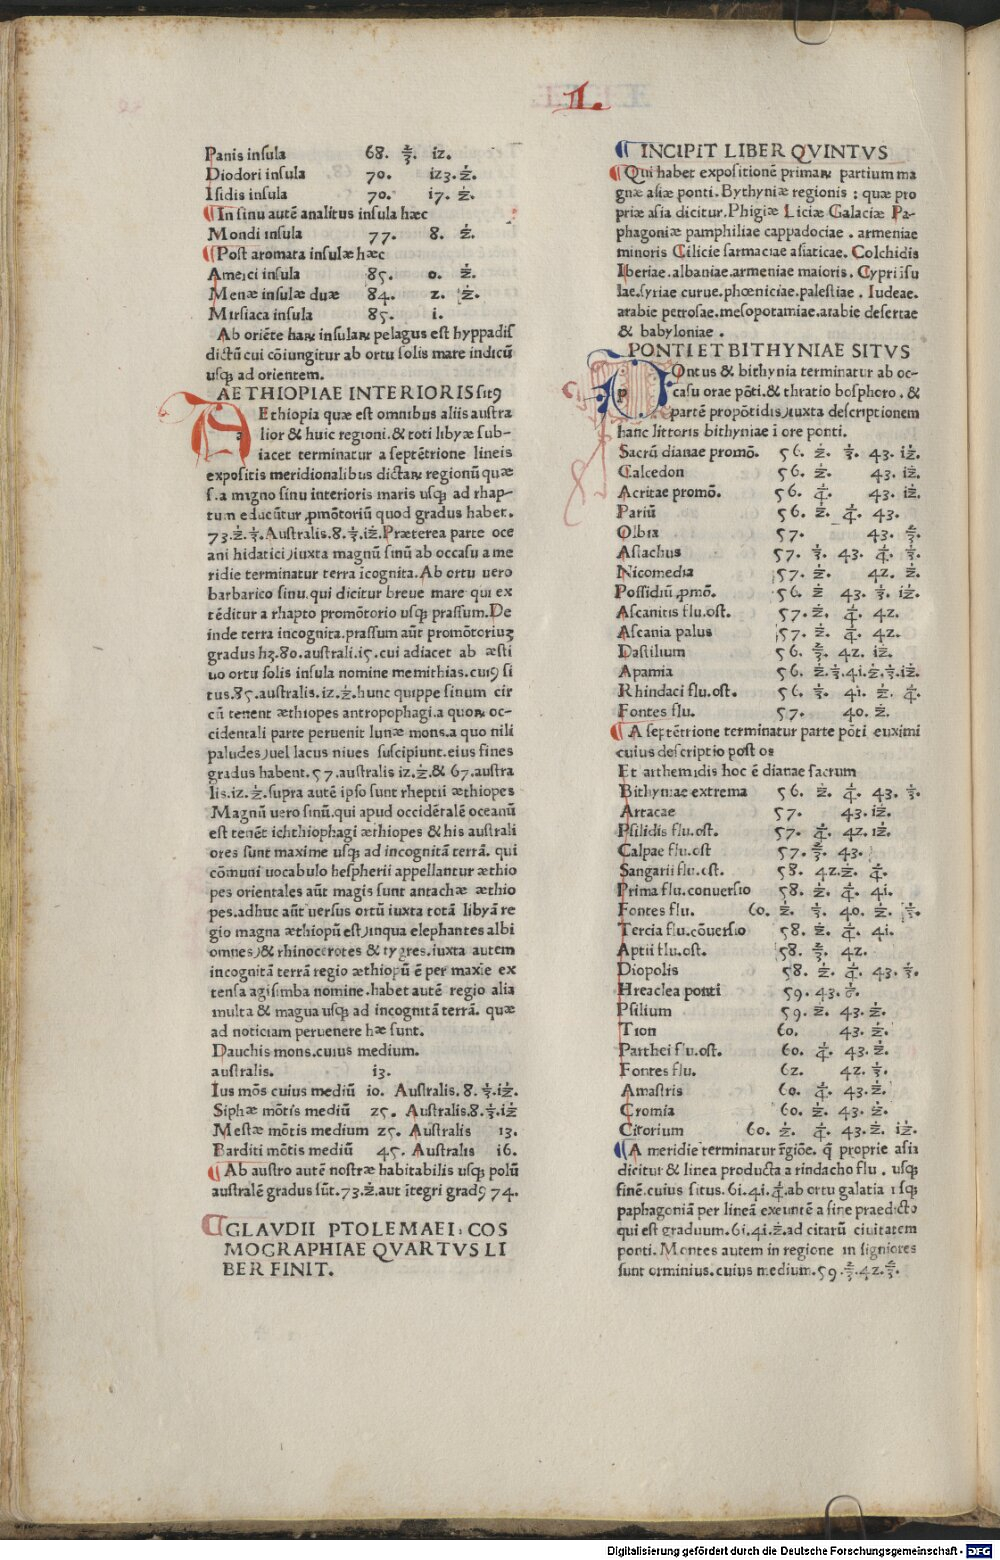 II.
Panis insula 68. ⅔. iz.
Diodori insula 70. iz3. ż.
Isidis insula 70. i7. ż.
¶ In sinu autē analitus insula hæc
Mondi insula 77. 8. ż.
¶ Post aromata insulæ hæc
Ameici insula 85. 0. ż.
Menæ insulæ duæ 84. z. ż.
Mirsiaca insula 85. i.
Ab oriēte haꝝ insulaꝝ pelagus est hyppadis
dictū cui cōiungitur ab ortu solis mare indicū
usq; ad orientem.
AETHIOPIAE INTERIORIS sitꝰ
AEthiopia quæ est omnibus aliis austra
lior & huic regioni. & toti libyæ sub-
iacet terminatur a septētrione lineis
expositis meridionalibus dictaꝝ regionū quæ
s. a migno sinu interioris maris usq; ad rhap-
tum educūtur ꝓmōtoriū quod gradus habet.
73. ż. ⅓. Australis. 8. ⅓. iż. Præterea parte oce
ani hidatici) iuxta magnū sinū ab occasu a me
ridie terminatur terra īcognita. Ab ortu uero
barbarico sinu. qui dicitur breue mare qui ex
tēditur a rhapto promōtorio usq; prassum. De
inde terra incognita. prassum aūt promōtoriuʒ
gradus hʒ. 80. australi. i5. cui adiacet ab æsti
uo ortu solis insula nomine memithias. cuiꝰ si
tus. 85. australis. iz. ż. hunc quippe sinum cir
cū tenent æthiopes antropophagi. a quoꝝ oc-
cidentali parte peruenit lunæ mons. a quo nili
paludes) uel lacus niues suscipiunt. eius fines
gradus habent. 57. australis iz. ż. & 67. austra
lis. iz. ż. supra autē ipso sunt rheptii æthiopes
Magnū uero sinū. qui apud occidētalē oceanū
est tenēt ichthiophagi æthiopes & his australi
ores sunt maxime usq; ad incognitā terrā. qui
cōmuni uocabulo hespherii appellantur æthio
pes orientales aūt magis sunt antachæ æthio
pes. adhuc aūt uersus ortū iuxta totā libyā re
gio magna æthiopū est) inqua elephantes albi
omnes) & rhinocerotes & tygres. iuxta autem
incognitā terrā regio æthiopū ē per maxie ex
tensa agisimba nomine. habet autē regio alia
multa & magua usq; ad incognitā terrā. quæ
ad noticiam peruenere hæ sunt.
Dauchis mons. cuius medium.
australis. i3.
Ius mōs cuius mediū io. Australis. 8. ⅓. iż.
Siphæ mōtis mediū z5. Australis. 8. ⅓. iż
Mestæ mōtis medium z5. Australis 13.
Barditi mōtis mediū 45. Australis i6.
¶ Ab austro autē nostræ habitabilis usq; polū
australē gradus sūt. 73. ż. aut ītegri gradꝰ 74.
¶ GLAVDII PTOLEMAEI, COS
MOGRAPHIAE QVARTVS LI
BER FINIT.
¶ INCIPIT LIBER QVINTVS
¶ Qui habet expositionē primaꝝ partium ma
gnæ asiæ ponti. Bythyniæ regionis : quæ pro
priæ asia dicitur. Phigiæ Liciæ Galaciæ Pa-
phagoniæ pamphiliae cappadociae . armeniae
minoris Cilicie sarmaciae asiaticae. Colchidis
Iberiae. albaniae. armeniae maioris. Cypri īsu
lae. syriae curue. phœniciae. palestiae . Iudeae.
arabie petrosae. mesopotamiae. arabie desertae
& babyloniae .
PONTI ET BITHYNIAE SITVS
POntus & bithynia terminatur ab oc-
casu orae pōti. & thratio bosphoro. &
partē propōtidis) iuxta descriptionem
hanc littoris bithyniae ī ore ponti.
Sacrū dianae promō. 56. ż. ⅓. 43. iż.
Calcedon 56. ż. 43. iż.
Acritae promō. 56. ¼. 43. iż.
Pariū 56. ż. ¼. 43.
Olbia 57. 43. ⅔.
Asiachus 57. ⅓. 43. ¼. ⅓.
Nicomedia 57. ż. 4z. ż.
Possidiū ꝓmō. 56. ż 43. ⅓. iż.
Ascanitis flu. ost. 57. ż. ¼. 4z.
Ascania palus 57. ż. ¼. 4z.
Dastilium 56. ⅔. 4z. iż.
Apamia 56. ż. ⅓. 4i. ż. ⅓. iż.
Rhindaci flu. ost. 56. ⅓. 4i. ż. ¼.
Fontes flu. 57. 40. ż.
¶ A septētrione terminatur parte pōti euximi
cuius descriptio post os
Et arthemidis hoc ē dianae sacrum
Bithyniae extrema 56. ż. ¼. 43. ⅓.
Artacae 57. 43. iż.
Psilidis flu. ost. 57. ¼. 4z. iż.
Calpae flu. ost 57. ⅔. 43.
Sangarii flu. ost. 58. 4z. ż. ¼.
Prima flu. conuersio 58. ż. ¼. 4i.
Fontes flu. 60. ż. ⅓. 40. ż. ⅓.
Tercia flu. cōuersio 58. ż. ¼. 4i.
Aptii flu. ost. 58. ⅔. 4z.
Diopolis 58. ż. ¼. 43. ⅓.
Hreaclea ponti 59. 43. ⅙.
Psilium 59. ż. 43. ż.
Tion 60. 43. ż.
Parthei flu. ost. 60. ¼. 43. ż.
Fontes flu. 6z. 4z. ⅓.
Amastris 60. ¼. 43. ż.
Cromia 60. ż. 43. ż.
Citorium 60. ż. ¼. 43. ż. iż.
¶ A meridie terminatur rgiōe. q̄ proprie asia
dicitur & linea producta a rindacho flu . usq;
finē. cuius situs. 6i. 4i. ¼. ab ortu galatia usq;
paphagoniā per lineā exeuntē a fine praedicto
qui est graduum. 6i. 4i. ż. ad citarū ciuitatem
ponti. Montes autem in regione in signiores
sunt orminius. cuius medium. 59. ⅔. 4z. ⅔.
Digitalisierung gefördert durch die Deutsche Forschungsgemeinschaft - DFG